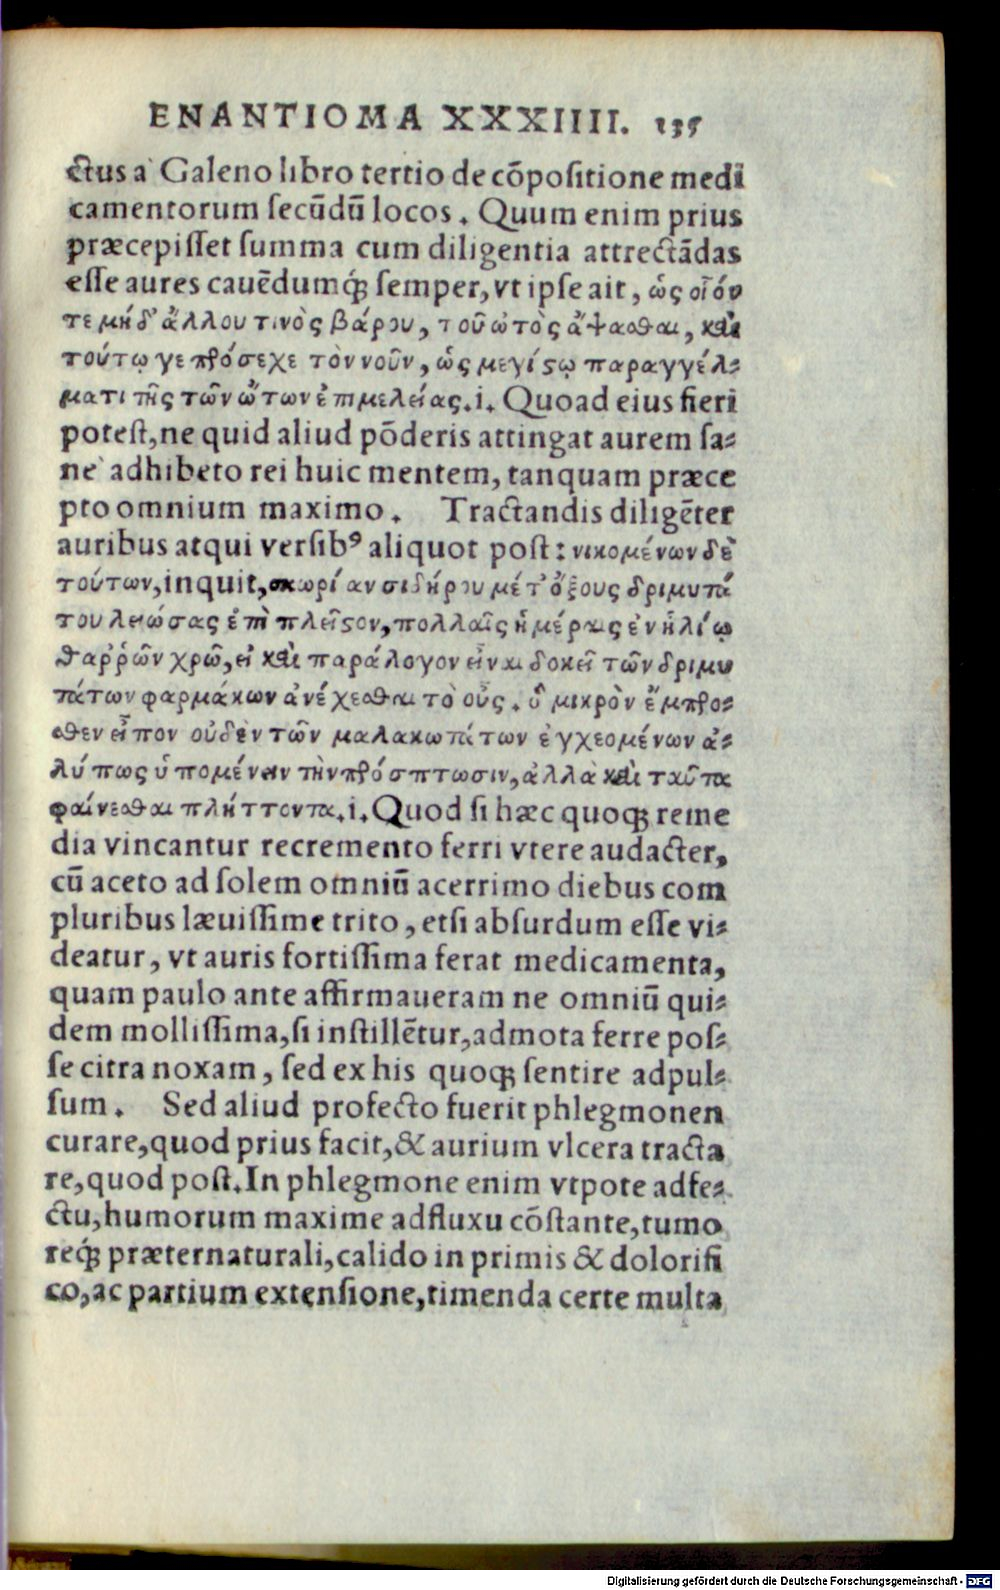 ENANTIOMA XXXIIII. 135
ctus a` Galeno libro tertio de cōpositione medi
camentorum secūdū locos. Quum enim prius
præcepisset summa cum diligentia attrectādas
esse aures cauēdumq́; semper, vt ipse ait, ὡς οἷόν
τε μήδ' ἄλλου τινὸς βάρου, τοῦ ὠτὸς ἅψαοθαι, καὶ
τούτῳ γε πρόσεχε τὸν νοῦν, ὡς μεγίϛῳ παραγγέλ⸗
ματι τῆς τῶν ὤτων ἐπιμελείας.i. Quoad eius fieri
potest, ne quid aliud pōderis attingat aurem sa⸗
ne` adhibeto rei huic mentem, tanquam præce
pto omnium maximo. Tractandis diligēter
auribus atqui versibꝰ aliquot post: νικομένων δὲ
τούτων, inquit, σκωρίαν σιδήρου μέτ' ὄξους δριμυτά
του λειώσας ἐπὶ πλεῖϛον, πολλαῖς ἡμέραις ἐν ἡλίῳ
θαῤῥῶν χρῶ, εἰ καὶ παράλογον εἶναι δοκεῖ τῶν δριμυ
τάτων φαρμάκων ἀνέχεσθαι τὸ οὖς. ὃ μικρὸν ἔμπρο⸗
σθεν εἶπον οὐδὲν τῶν μαλακωτάτων ἐγχεομένων ἀ⸗
λύπως ὑπομένειν τὴν πρόσπτωσιν, ἀλλὰ καὶ ταῦτα
φαίνεσθαι πλήττοντα.i. Quod si hæc quoq; reme
dia vincantur recremento ferri vtere audacter,
cū aceto ad solem omniū acerrimo diebus com
pluribus læuissime trito, etsi absurdum esse vi⸗
deatur, vt auris fortissima ferat medicamenta,
quam paulo ante affirmaueram ne omniū qui⸗
dem mollissima, si instillētur, admota ferre pos⸗
se citra noxam, sed ex his quoq; sentire adpul⸗
sum. Sed aliud profecto fuerit phlegmonen
curare, quod prius facit, & aurium vlcera tracta
re, quod post. In phlegmone enim vtpote adfe⸗
ctu, humorum maxime adfluxu cōstante, tumo
req́; præternaturali, calido in primis & dolorifi
co, ac partium extensione, timenda certe multa
Digitalisierung gefördert durch die Deutsche Forschungsgemeinschaft - DFG